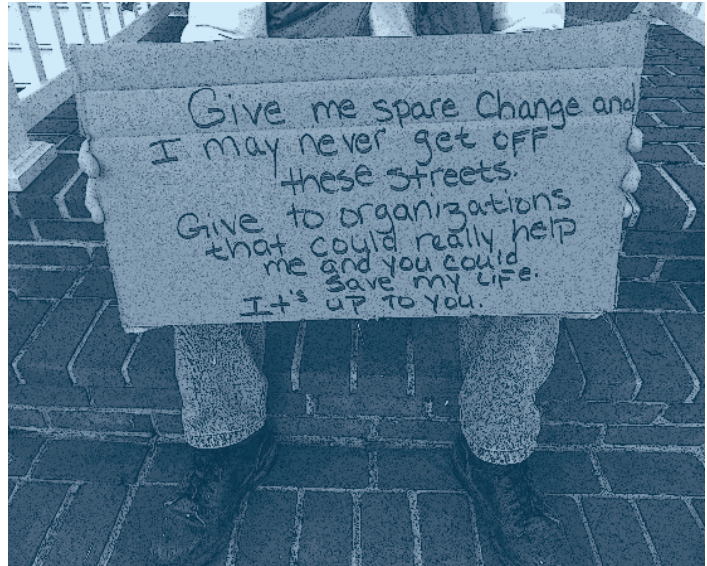 Give me spare Change and
I may never get OFF
these streets.
Give to organizations
that could really help
me and you could
save my LiFe.
It's UP TO YOU.